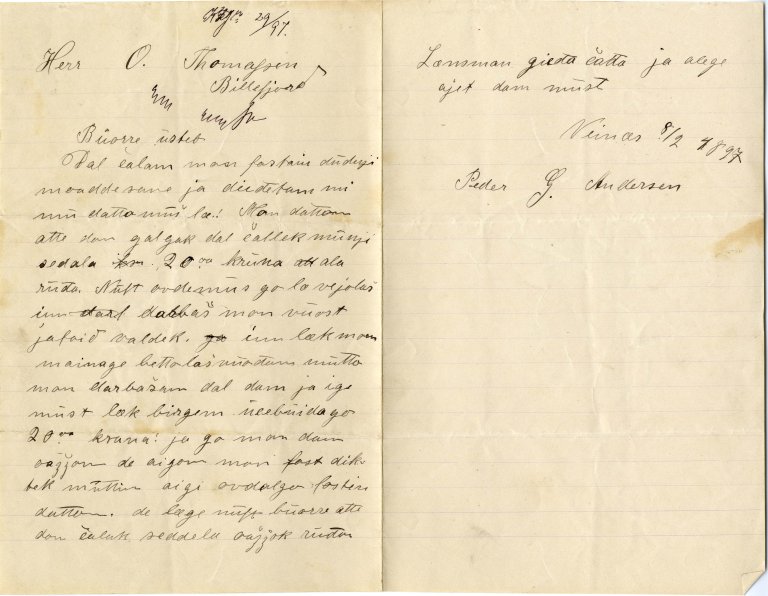 29/97.
Herr O. Thomassen
Billefjord
Buorre usteb
Dal calam mon fastain dudnji
moaddesane ja diedetam mi
mu datto must læ! Mon dattom
atte don galgak dal čallek munji
sedala 20 00 kruna ala
ruđa. Nuft ovdemus go la vejolaš
im dabbaš mon vuost
jafoid valdek. im læk mon
mainage bettolašvuođam mutto
mon darbašam dal dam ja ige
must læk birgem ucebuid a go
20 00 krana! ja go mon dam
oažžom de aigom mon fast dik
tek muttin aigi ovdalgo fastin
dattom. de læge nuft buorre atte
don čalak seddela oažžok ruđa
Lænsman gieđa čađa ja alege
ajet dam must
Veines 8/2 1897
Peder G. Andersen